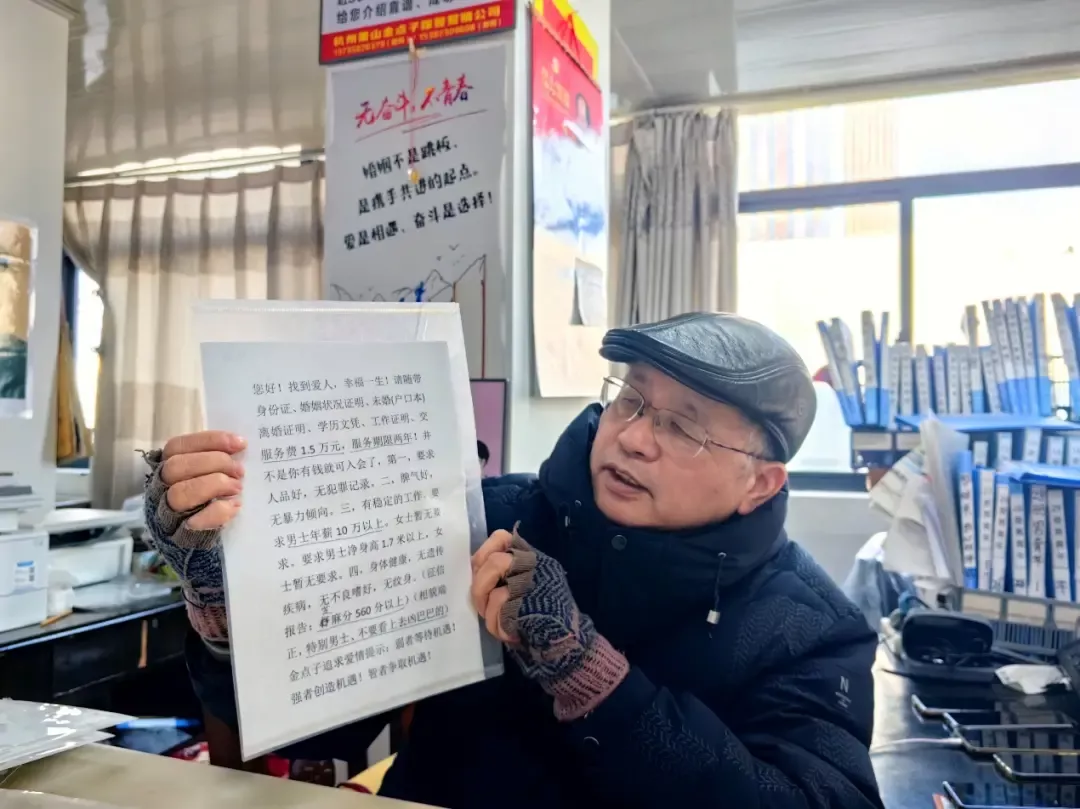 给您介绍靠谱、
杭州萧山金点子
无奋斗，不青春
婚姻不是跳板、
是携手共进的起点。
爱是相遇、奋斗是选择！
您好！找到爱人，幸福一生！请随带
身份证、婚姻状况证明、未婚(户口本)
离婚证明、学历文凭、工作证明、交
服务费 1.5 万元，服务期限两年！并
不是你有钱就可入会了，第一，要求
人品好，无犯罪记录。二，脾气好，
无暴力倾向。三，有稳定的工作、要
求男士年薪 10 万以上。女士暂无要
求。要求男士净身高 1.7 米以上，女
士暂无要求。四，身体健康，无遗传
疾病，无不良嗜好，无纹身。（征信
报告：芝麻分 560 分以上）（相貌端
正，特别男士、不要看上去凶巴巴的）
金点子追求爱情提示：弱者等待机遇！
强者创造机遇！智者争取机遇！
N